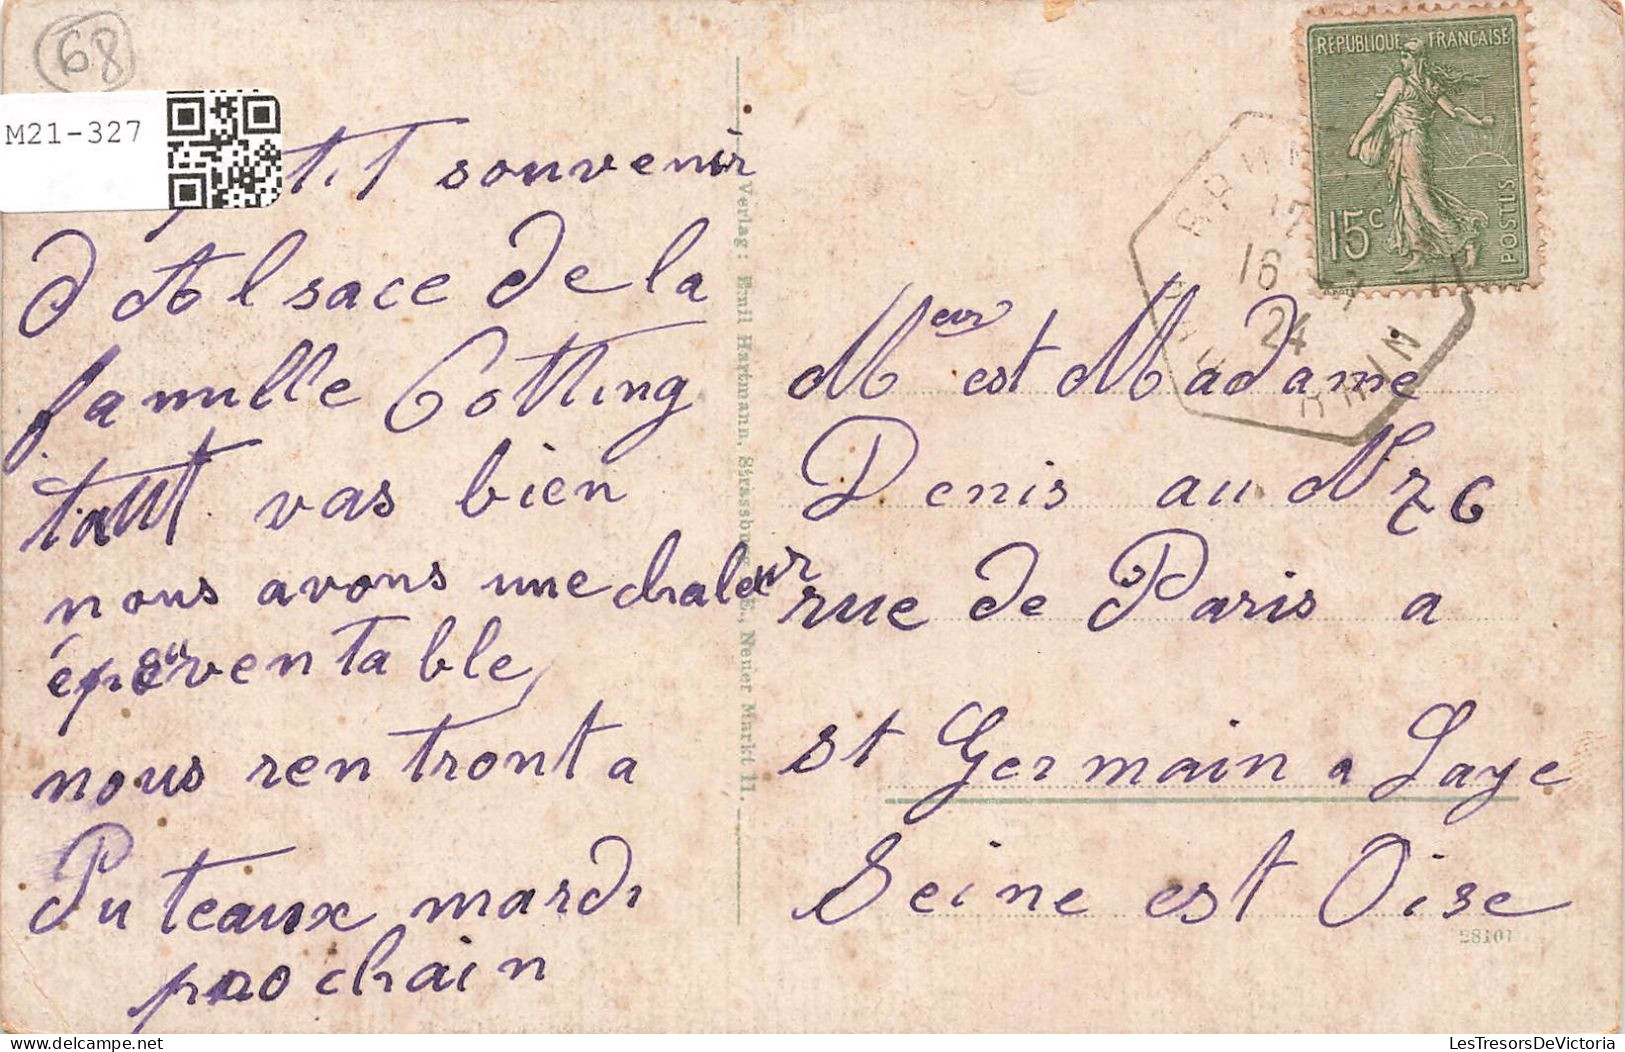 68
M21-327
ptit souvenir
d'Alsace de la
famille Cotting
tout vas bien
nous avons une chaleur
épouventable
nous rentront a
Puteaux mardi
prochain
Verlag: Emil Hartmann, Strassburg i. E., Neuer Markt 11.
REPUBLIQUE FRANÇAISE
15c
POSTES
17
16 -7
24
RHIN
Meur est Madame
Denis au N 76
rue de Paris a
St Germain a Laye
Seine est Oise
28101
delcampe.net
LesTresorsDeVictoria